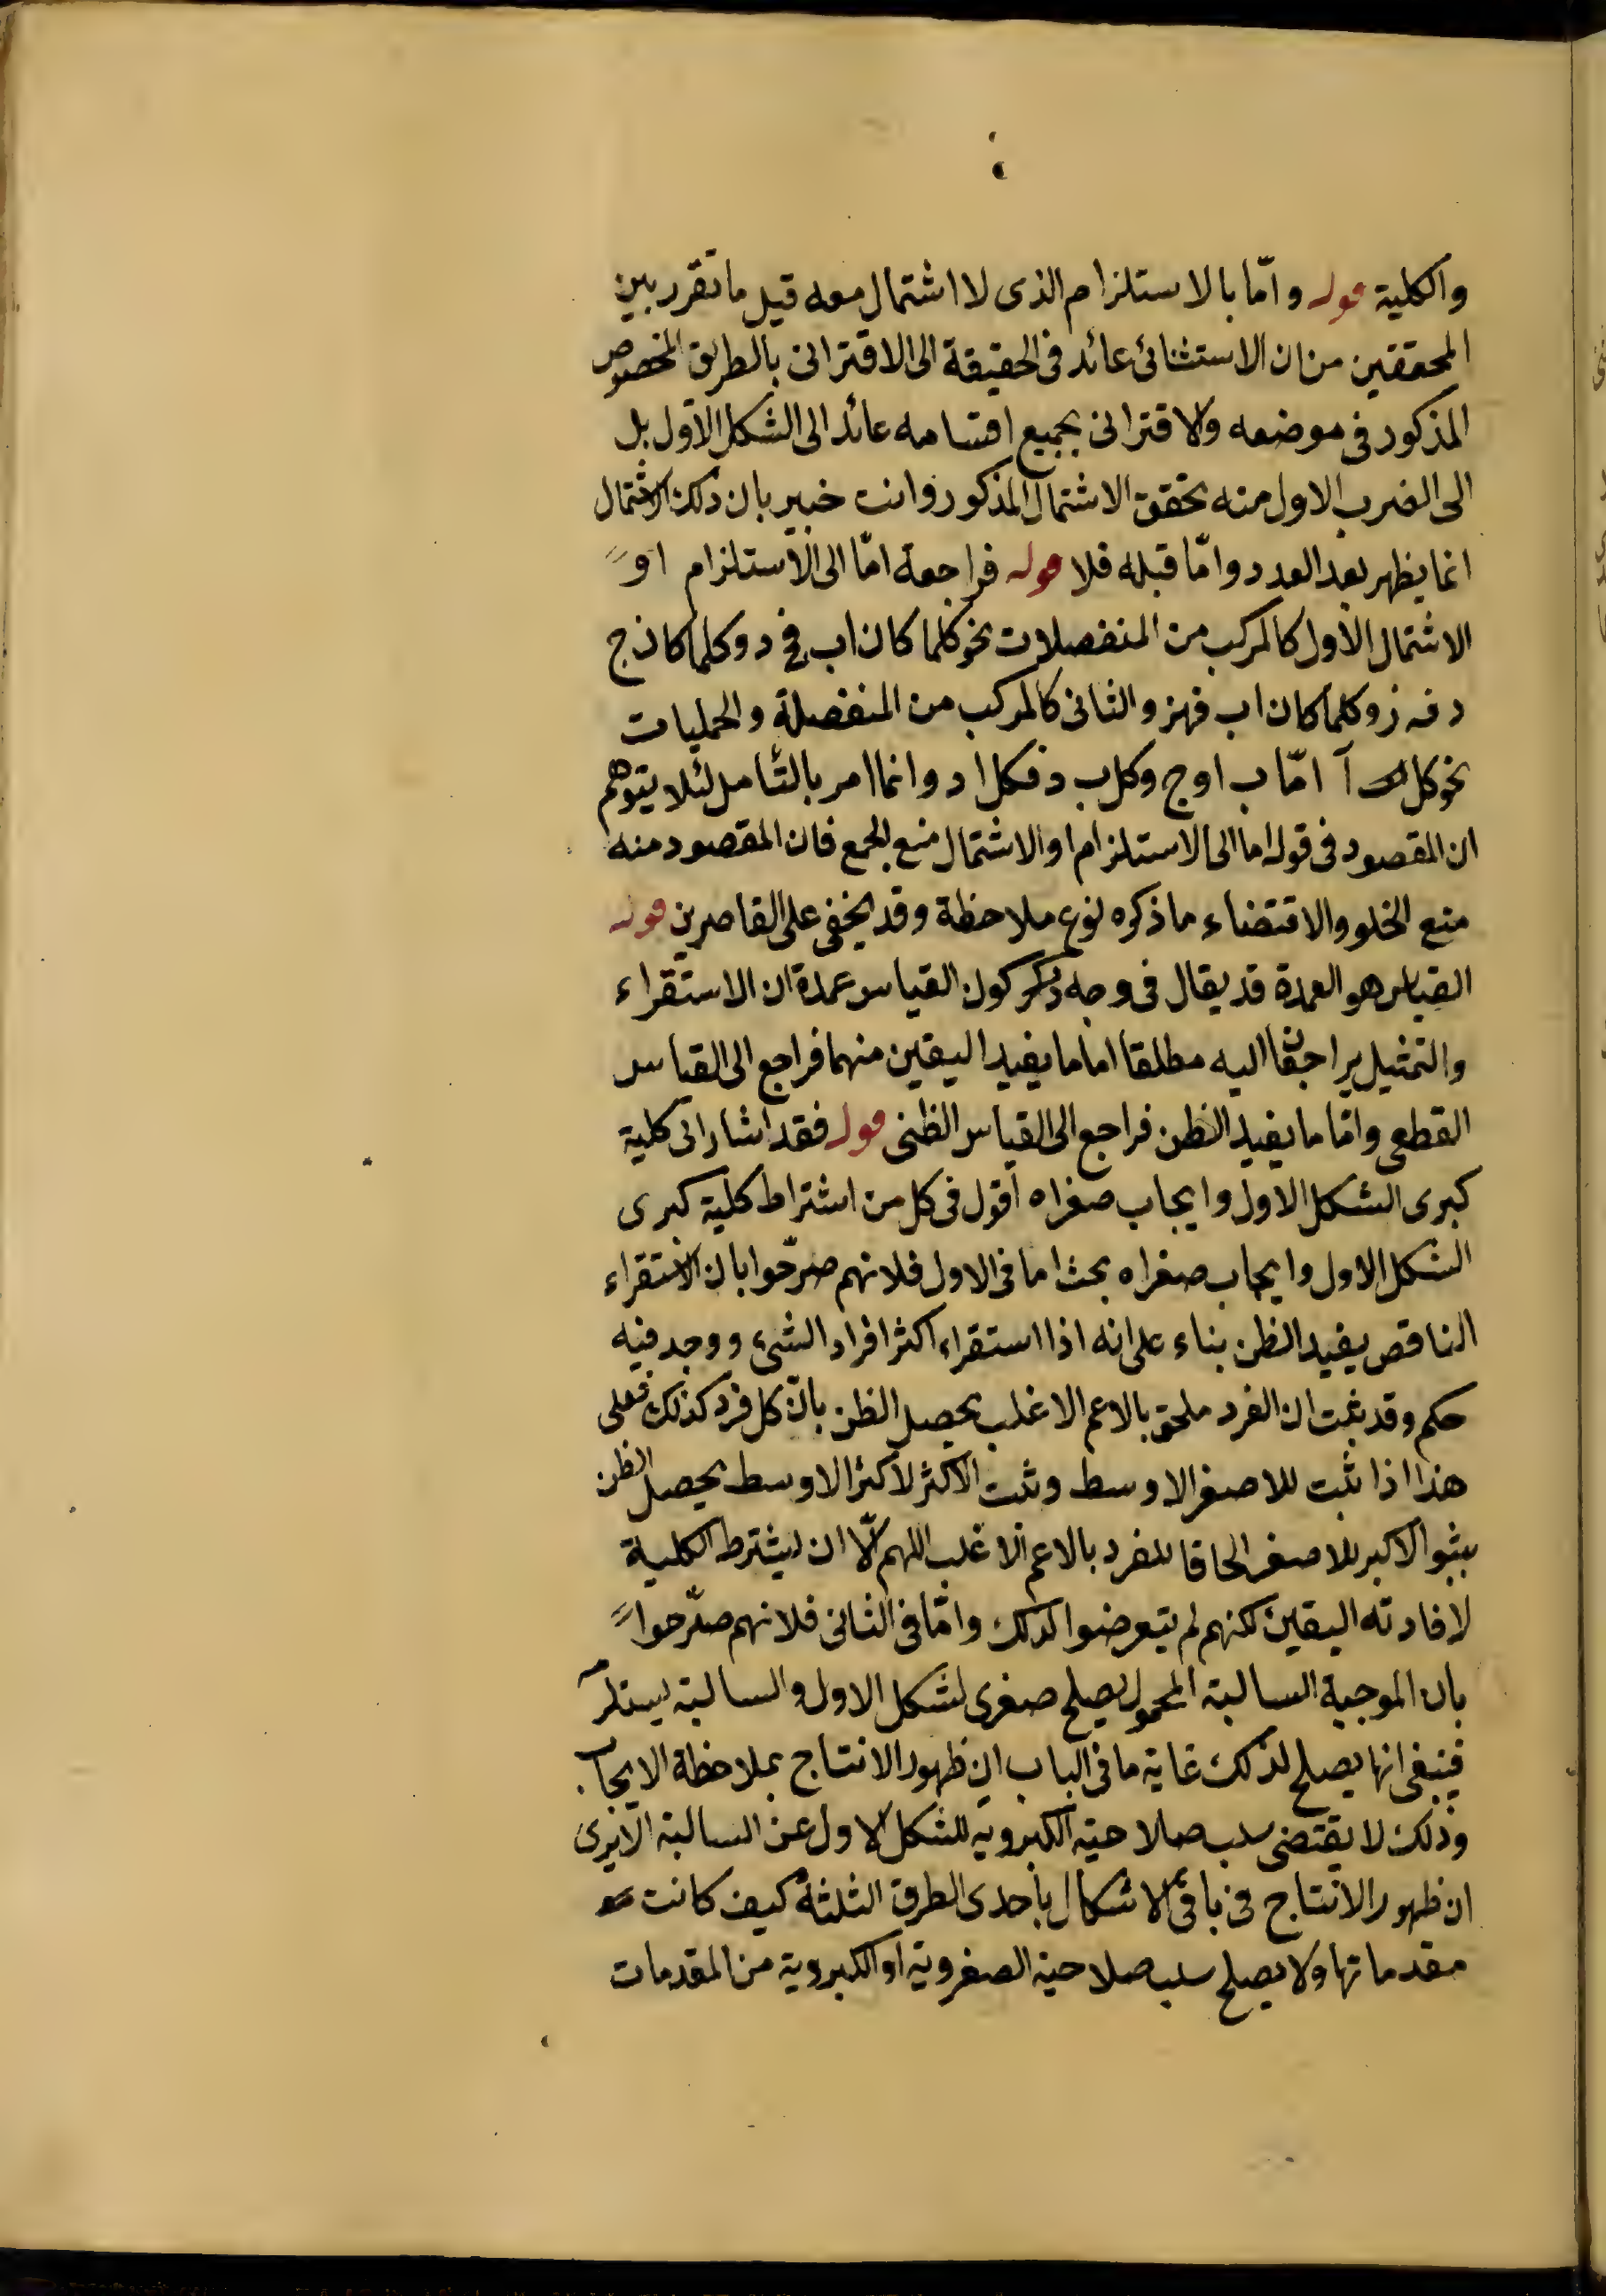 والكلية قوله وامّا بالاستلزام الذى لا اشتمال معه قيل ما تقرر بين
المحققين من ان الاستثنائى عائد فى الحقيقة الى الاقترانى بالطريق المخصوص
المذكور فى موضعه والاقترانى بجميع اقسامه عائد الى الشكل الاول بل
الى الضرب الاول منه تحقق الاشتمال المذكور وانت خبير بان ذلك الاشتمال
انما يظهر بعد العدد وامّا قبله فلا قوله فراجعة امّا الى الاستلزام او
الاشتمال الاول كالمركب من المنفصلات نحو كلما كان اب فج د وكلما كان ج
د فه ز وكلما كان اب فهز والثانى كالمركب من المنفصلة والحمليات
نحو كل آ امّا ب او ج وكل ب د فكل ا د وانما امر بالتأمل لئلا يتوهم
ان المقصود فى قوله اما الى الاستلزام او الاشتمال منع الجمع فان المقصود منه
منع الخلو والاقتضاء ما ذكره نوع ملاحظة وقد يخفى على القاصرين قوله
القياس هو العمدة قد يقال فى وجه ذكر كون القياس عمدة ان الاستقراء
والتمثيل يراجعان اليه مطلقا اما ما يفيد اليقين منهما فراجع الى القياس
القطعى وامّا ما يفيد الظن فراجع الى القياس الظنى قوله فقد اشار الى كلية
كبرى الشكل الاول وايجاب صغراه اقول فى كل من اشتراط كلية كبرى
الشكل الاول وايجاب صغراه بحث اما فى الاول فلانهم صرّحوا بان الاستقراء
الناقص يفيد الظن بناء على انه اذا استقراء اكثر افراد الشىء ووجد فيه
حكم وقد ثبت ان الفرد ملحق بالاعم الاغلب يحصل الظن بانّ كل فرد كذلك فعلى
هذا اذا ثبت للاصغر الاوسط وثبت الاكثر لاكثر الاوسط يحصل الظن
بثبو الاكبر للاصغر الحاقا للفرد بالاعم الاغلب اللهم الّا ان يشترط الكلية
لافادته اليقين لكنهم لم يتعرضوا لذلك وامّا فى الثانى فلانهم صرّحوا
بان الموجبة السالبة المحمول يصلح صغرى لشكل الاول والسالبة يستلز
فينبغى انها يصلح لذلك غاية ما فى الباب ان ظهور الانتاج بملاحظة الايجاب
وذلك لا يقتضى سلب صلاحية الكبروية للشكل الاول عن السالبة الا يرى
ان ظهور الانتاج فى باقى الاشكال باحدى الطرق الثلثة كيف كانت
مقدماتها ولا يصلح سلب صلاحية الصغروية او الكبروية من المقدمات